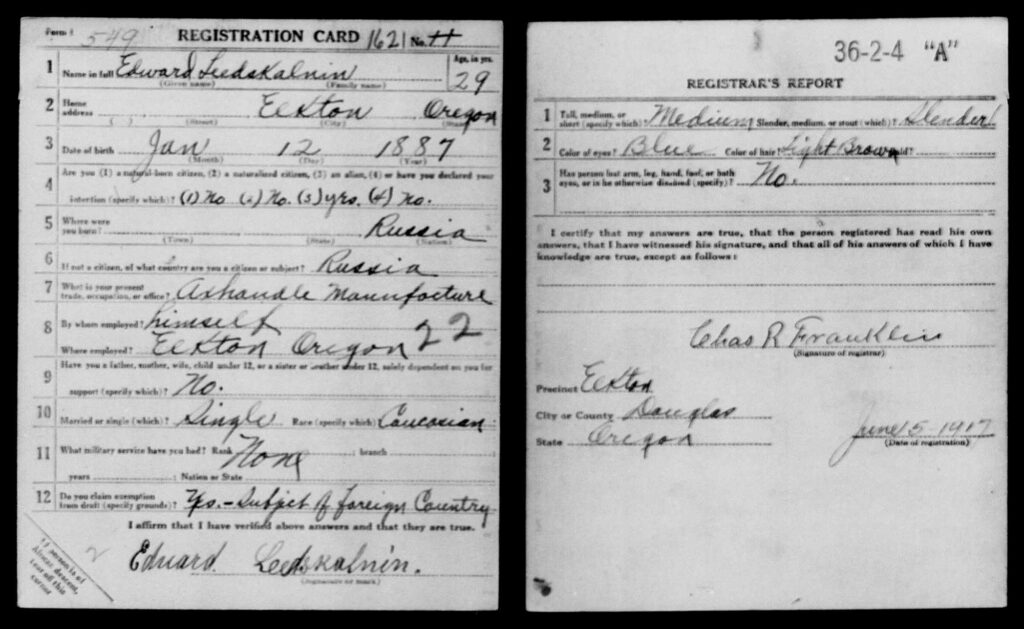 Form 1 549 REGISTRATION CARD 1621 No. 44
1 Name in full Edward Leedskalnin Age, in yrs.
(Given name) (Family name) 29
2 Home address Elkton Oregon
(Street) (City) (State)
3 Date of birth Jan 12 1887
(Month) (Day) (Year)
4 Are you (1) a natural-born citizen, (2) a naturalized citizen, (3) an alien, (4) or have you declared your
intention (specify which)? (1) No (2) No. (3) yes. (4) no.
5 Where were you born? Russia
(Town) (State) (Nation)
6 If not a citizen, of what country are you a citizen or subject? Russia
7 What is your present trade, occupation, or office? Axhandle Manufacture
8 By whom employed? himself 22
Where employed? Elkton Oregon
9 Have you a father, mother, wife, child under 12, or a sister or brother under 12, solely dependent on you for
support (specify which)? No.
10 Married or single (which)? Single Race (specify which)? Caucasian
11 What military service have you had? Rank None ; branch
years ; Nation or State
12 Do you claim exemption from draft (specify grounds)? Yes.- Subject of foreign Country
I affirm that I have verified above answers and that they are true.
Edward Leedskalnin.
(Signature or mark)
2
If person is of
African descent,
tear off this
corner
36-2-4 "A"
REGISTRAR'S REPORT
1 Tall, medium, or short (specify which)? Medium Slender, medium, or stout (which)? Slender
2 Color of eyes? Blue Color of hair? Light Brown Bald?
3 Has person lost arm, leg, hand, foot, or both
eyes, or is he otherwise disabled (specify)? No.
I certify that my answers are true, that the person registered has read his own
answers, that I have witnessed his signature, and that all of his answers of which I have
knowledge are true, except as follows:
Chas R Franklin
(Signature of registrar)
Precinct Elkton
City or County Douglas
State Oregon June 5-1917
(Date of registration)